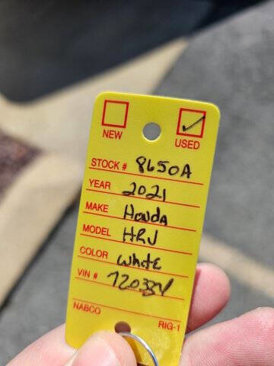 NEW USED
STOCK # 8650A
YEAR 2021
MAKE Honda
MODEL HRV
COLOR White
VIN #
NABCO RIG-1